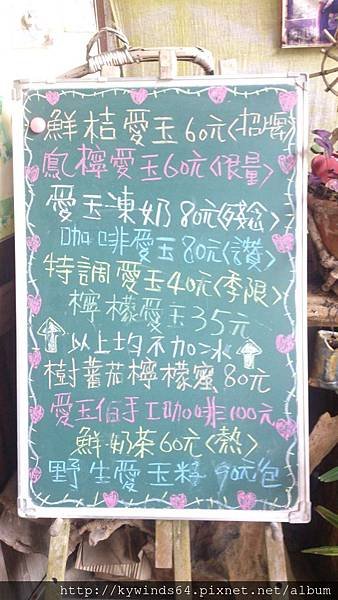 鮮桔愛玉60元<招牌>
鳳檸愛玉60元<限量>
愛玉凍奶80元<殘念>
咖啡愛玉80元<讚>
特調愛玉40元<季限>
檸檬愛玉35元
以上均不加冰
樹蕃茄檸檬蜜80元
愛玉伯手工咖啡100元
鮮奶茶60元<熱>
野生愛玉籽90元包
http://kywinds64.pixnet.net/album